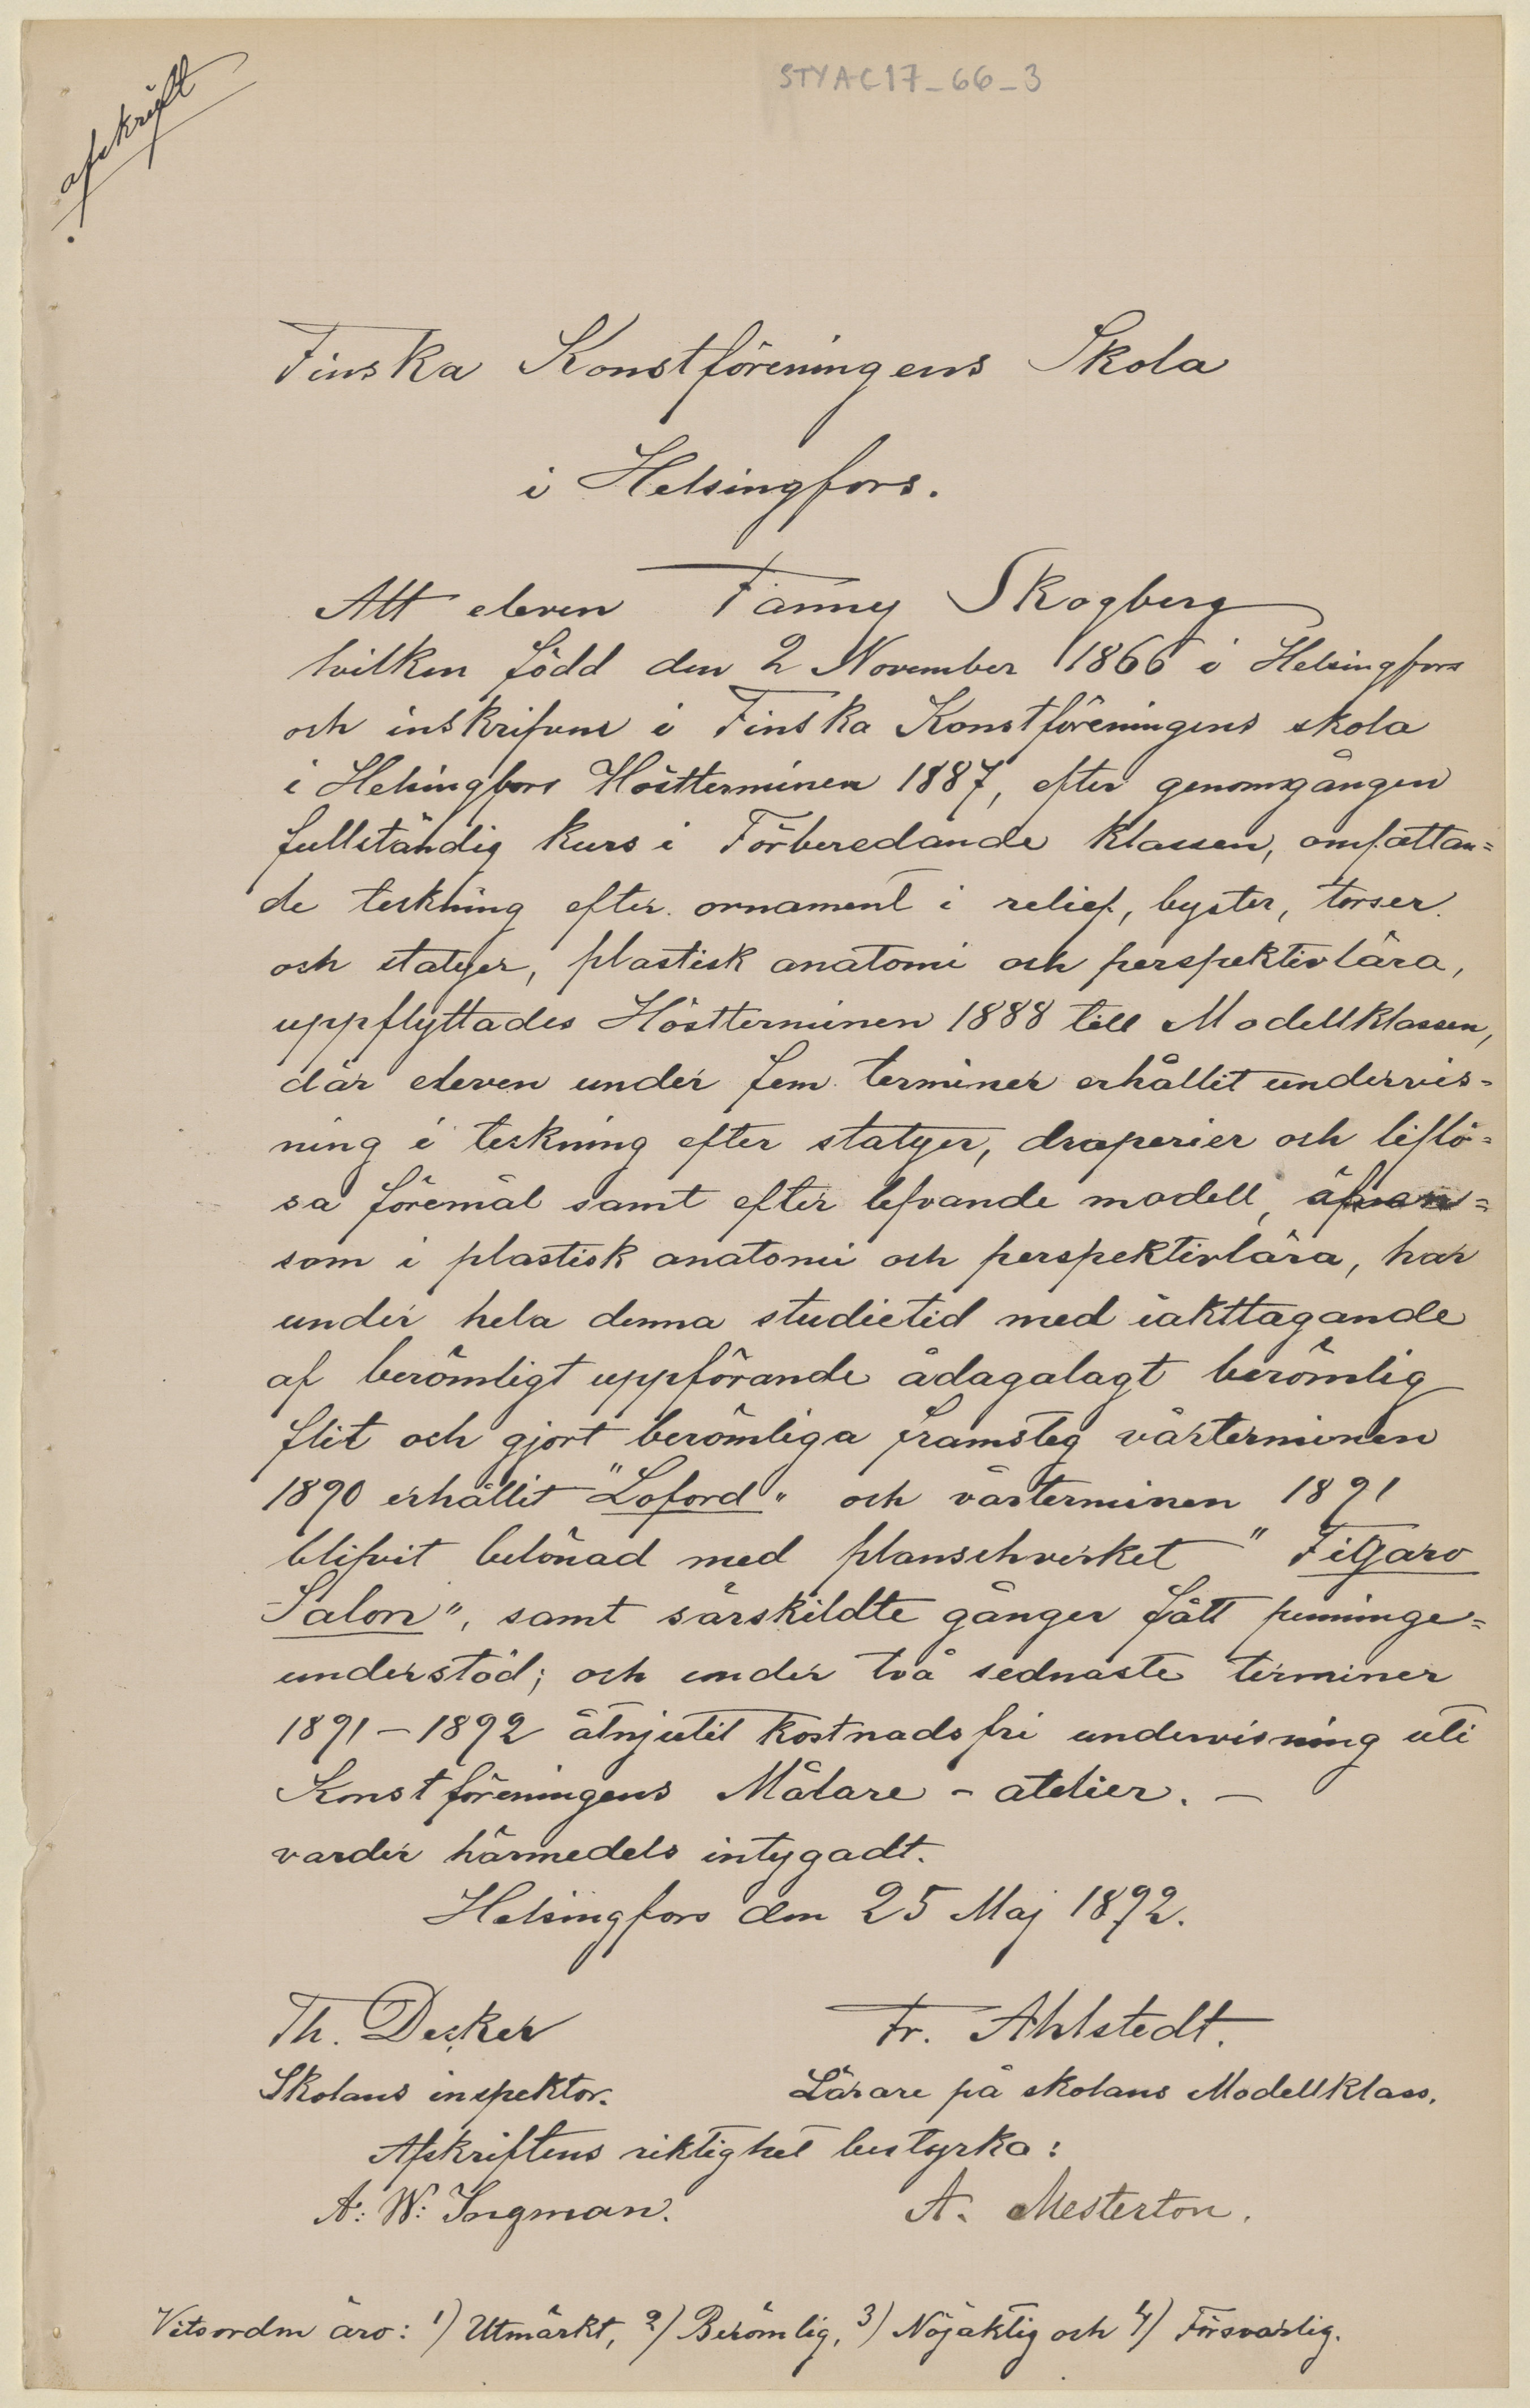 STYAC17_66_3
afskrift
Finska Konstföreningens Skola
i Helsingfors.
Att eleven Fanny Skogberg
hvilken född den 2 November 1866 i Helsingfors
och inskrifven i Finska Konstföreningens skola
i Helsingfors Höstterminen 1887, efter genomgången
fullständig kurs i Förberedande klassen, omfattan=
de teckning efter ornament i relief, byster, torser
och statyer, plastisk anatomi och perspektivlära,
uppflyttades Höstterminen 1888 till Modellklassen,
där eleven under fem terminer erhållit undervis=
ning i teckning efter statyer, draperier och liflö=
sa föremål samt efter lefvande modell, äfven=
som i plastisk anatomi och perspektivlära, har
under hela denna studietid med iakttagande
af berömligt uppförande ådagalagt berömlig
flit och gjort berömliga framsteg vårterminen
1890 erhållit "Loford" och vårterminen 1891
blifvit belönad med planschverket "Figaro
Salon", samt särskildte gånger fått penninge=
understöd; och under två sednaste terminer
1891-1892 åtnjutit kostnadsfri undervisning uti
Konstföreningens Målare-atelier. —
varder härmedels intygadt.
Helsingfors den 25 Maj 1892.
Th. Decker Fr. Ahlstedt.
Skolans inspektor. Lärare på skolans Modellklass.
Afskriftens riktighet bestyrka:
A: W: Ingman. A. Mesterton.
Vitsorden äro: 1) Utmärkt, 2) Berömlig, 3) Nöjaktig och 4) Försvarlig.